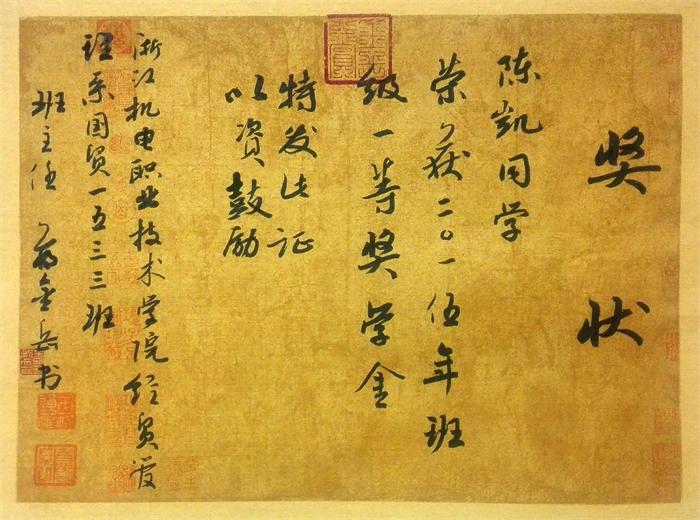 奖状
陈凯同学
荣获二〇一伍年班
级一等奖学金
特发此证
以资鼓励
浙江机电职业技术学院经贸管
理系国贸一五三三班
班主任 翁金岳书